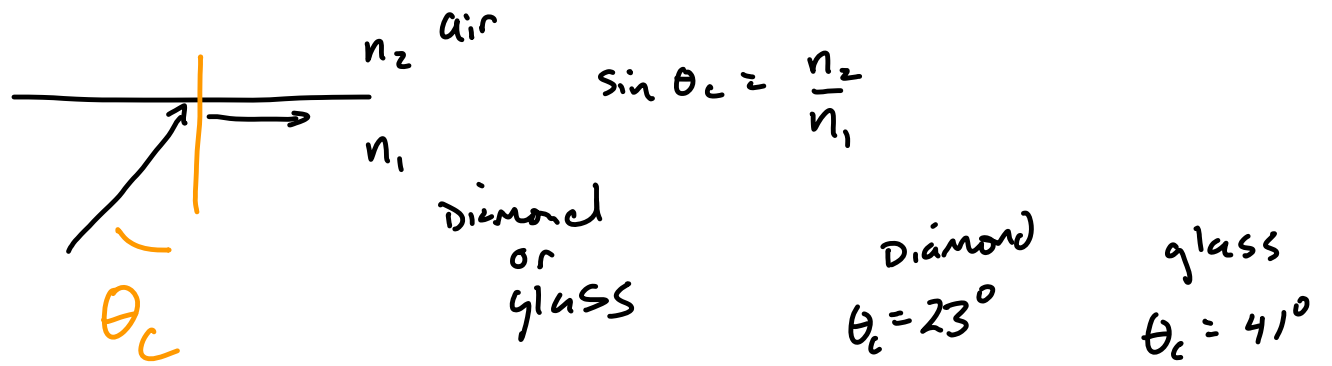 n₂ air
sin θc = n₂/n₁
n₁
Diamond
or
glass
θc
Diamond glass
θc = 23° θc = 41°